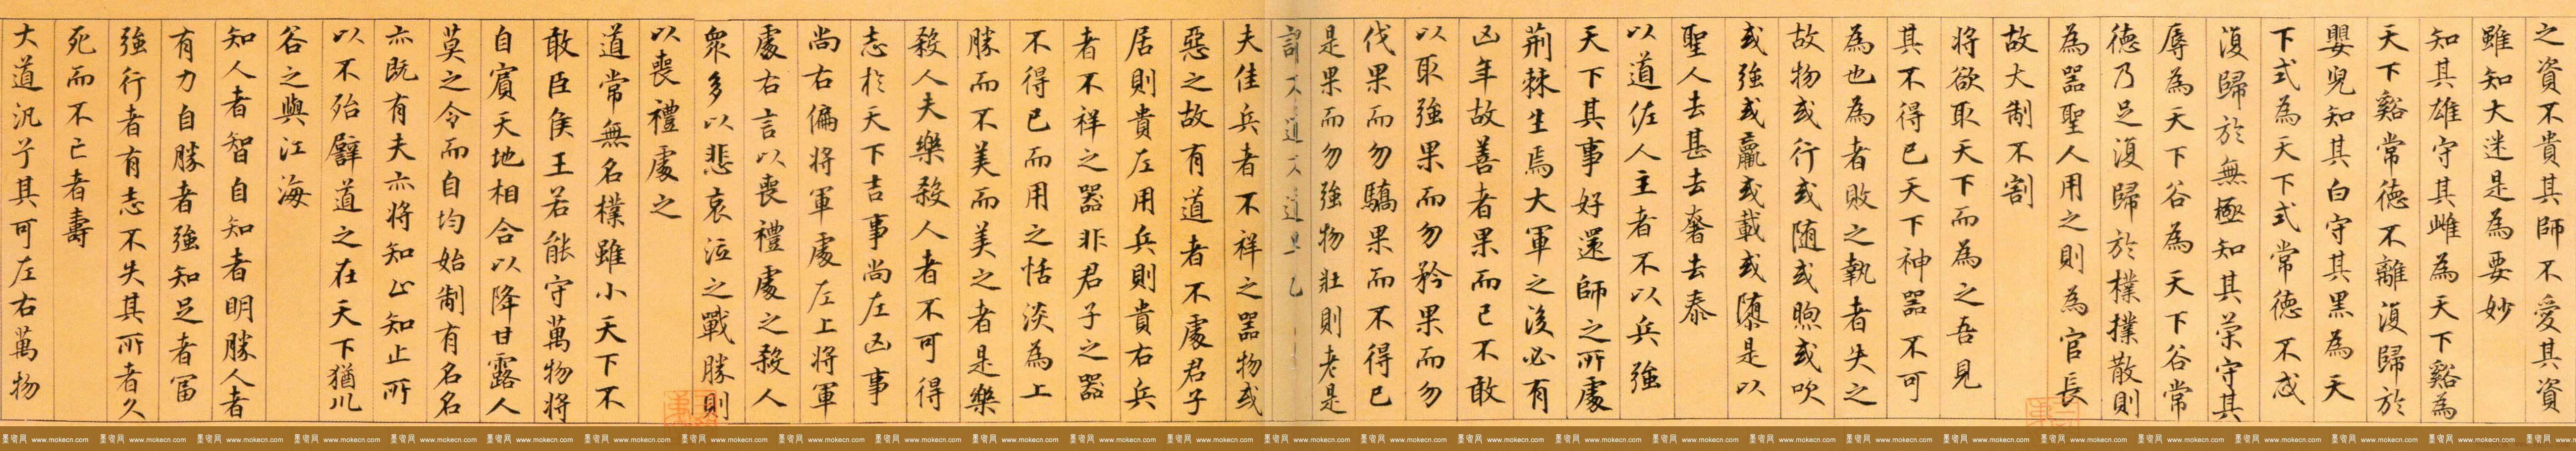 之資不貴其師不愛其資
雖知大迷是為要妙
知其雄守其雌為天下谿為
天下谿常徳不離復歸於
嬰兒知其白守其黑為天
下式為天下式常徳不忒
復歸於無極知其榮守其
辱為天下谷為天下谷常
徳乃足復歸於樸樸散則
為器聖人用之則為官長
故大制不割
將欲取天下而為之吾見
其不得已天下神器不可
為也為者敗之執者失之
故物或行或随或煦或吹
或強或羸或載或隳是以
聖人去甚去奢去泰
以道佐人主者不以兵強
天下其事好還師之所處
荆棘生焉大軍之後必有
凶年故善者果而已不敢
以取強果而勿矜果而勿
伐果而勿驕果而不得已
是果而勿強物壯則老是
謂不道不道早已
夫佳兵者不祥之器物或
惡之故有道者不處君子
居則貴左用兵則貴右兵
者不祥之器非君子之器
不得已而用之恬淡為上
勝而不美而美之者是樂
殺人夫樂殺人者不可得
志於天下吉事尚左凶事
尚右偏將軍處左上將軍
處右言以喪禮處之殺人
衆多以悲哀泣之戰勝則
以喪禮處之
道常無名樸雖小天下不
敢臣侯王若能守萬物將
自賓天地相合以降甘露人
莫之令而自均始制有名名
亦既有夫亦將知止知止所
以不殆譬道之在天下猶川
谷之與江海
知人者智自知者明勝人者
有力自勝者強知足者富
強行者有志不失其所者久
死而不亡者壽
大道汎兮其可左右萬物
墨客网 www.mokecn.com